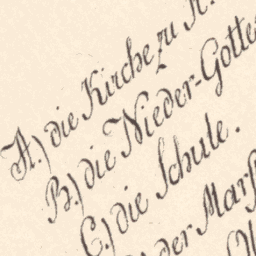 A.) die Kirche zu
B.) die Nieder-Gotte
C.) die Schule.
der Mars